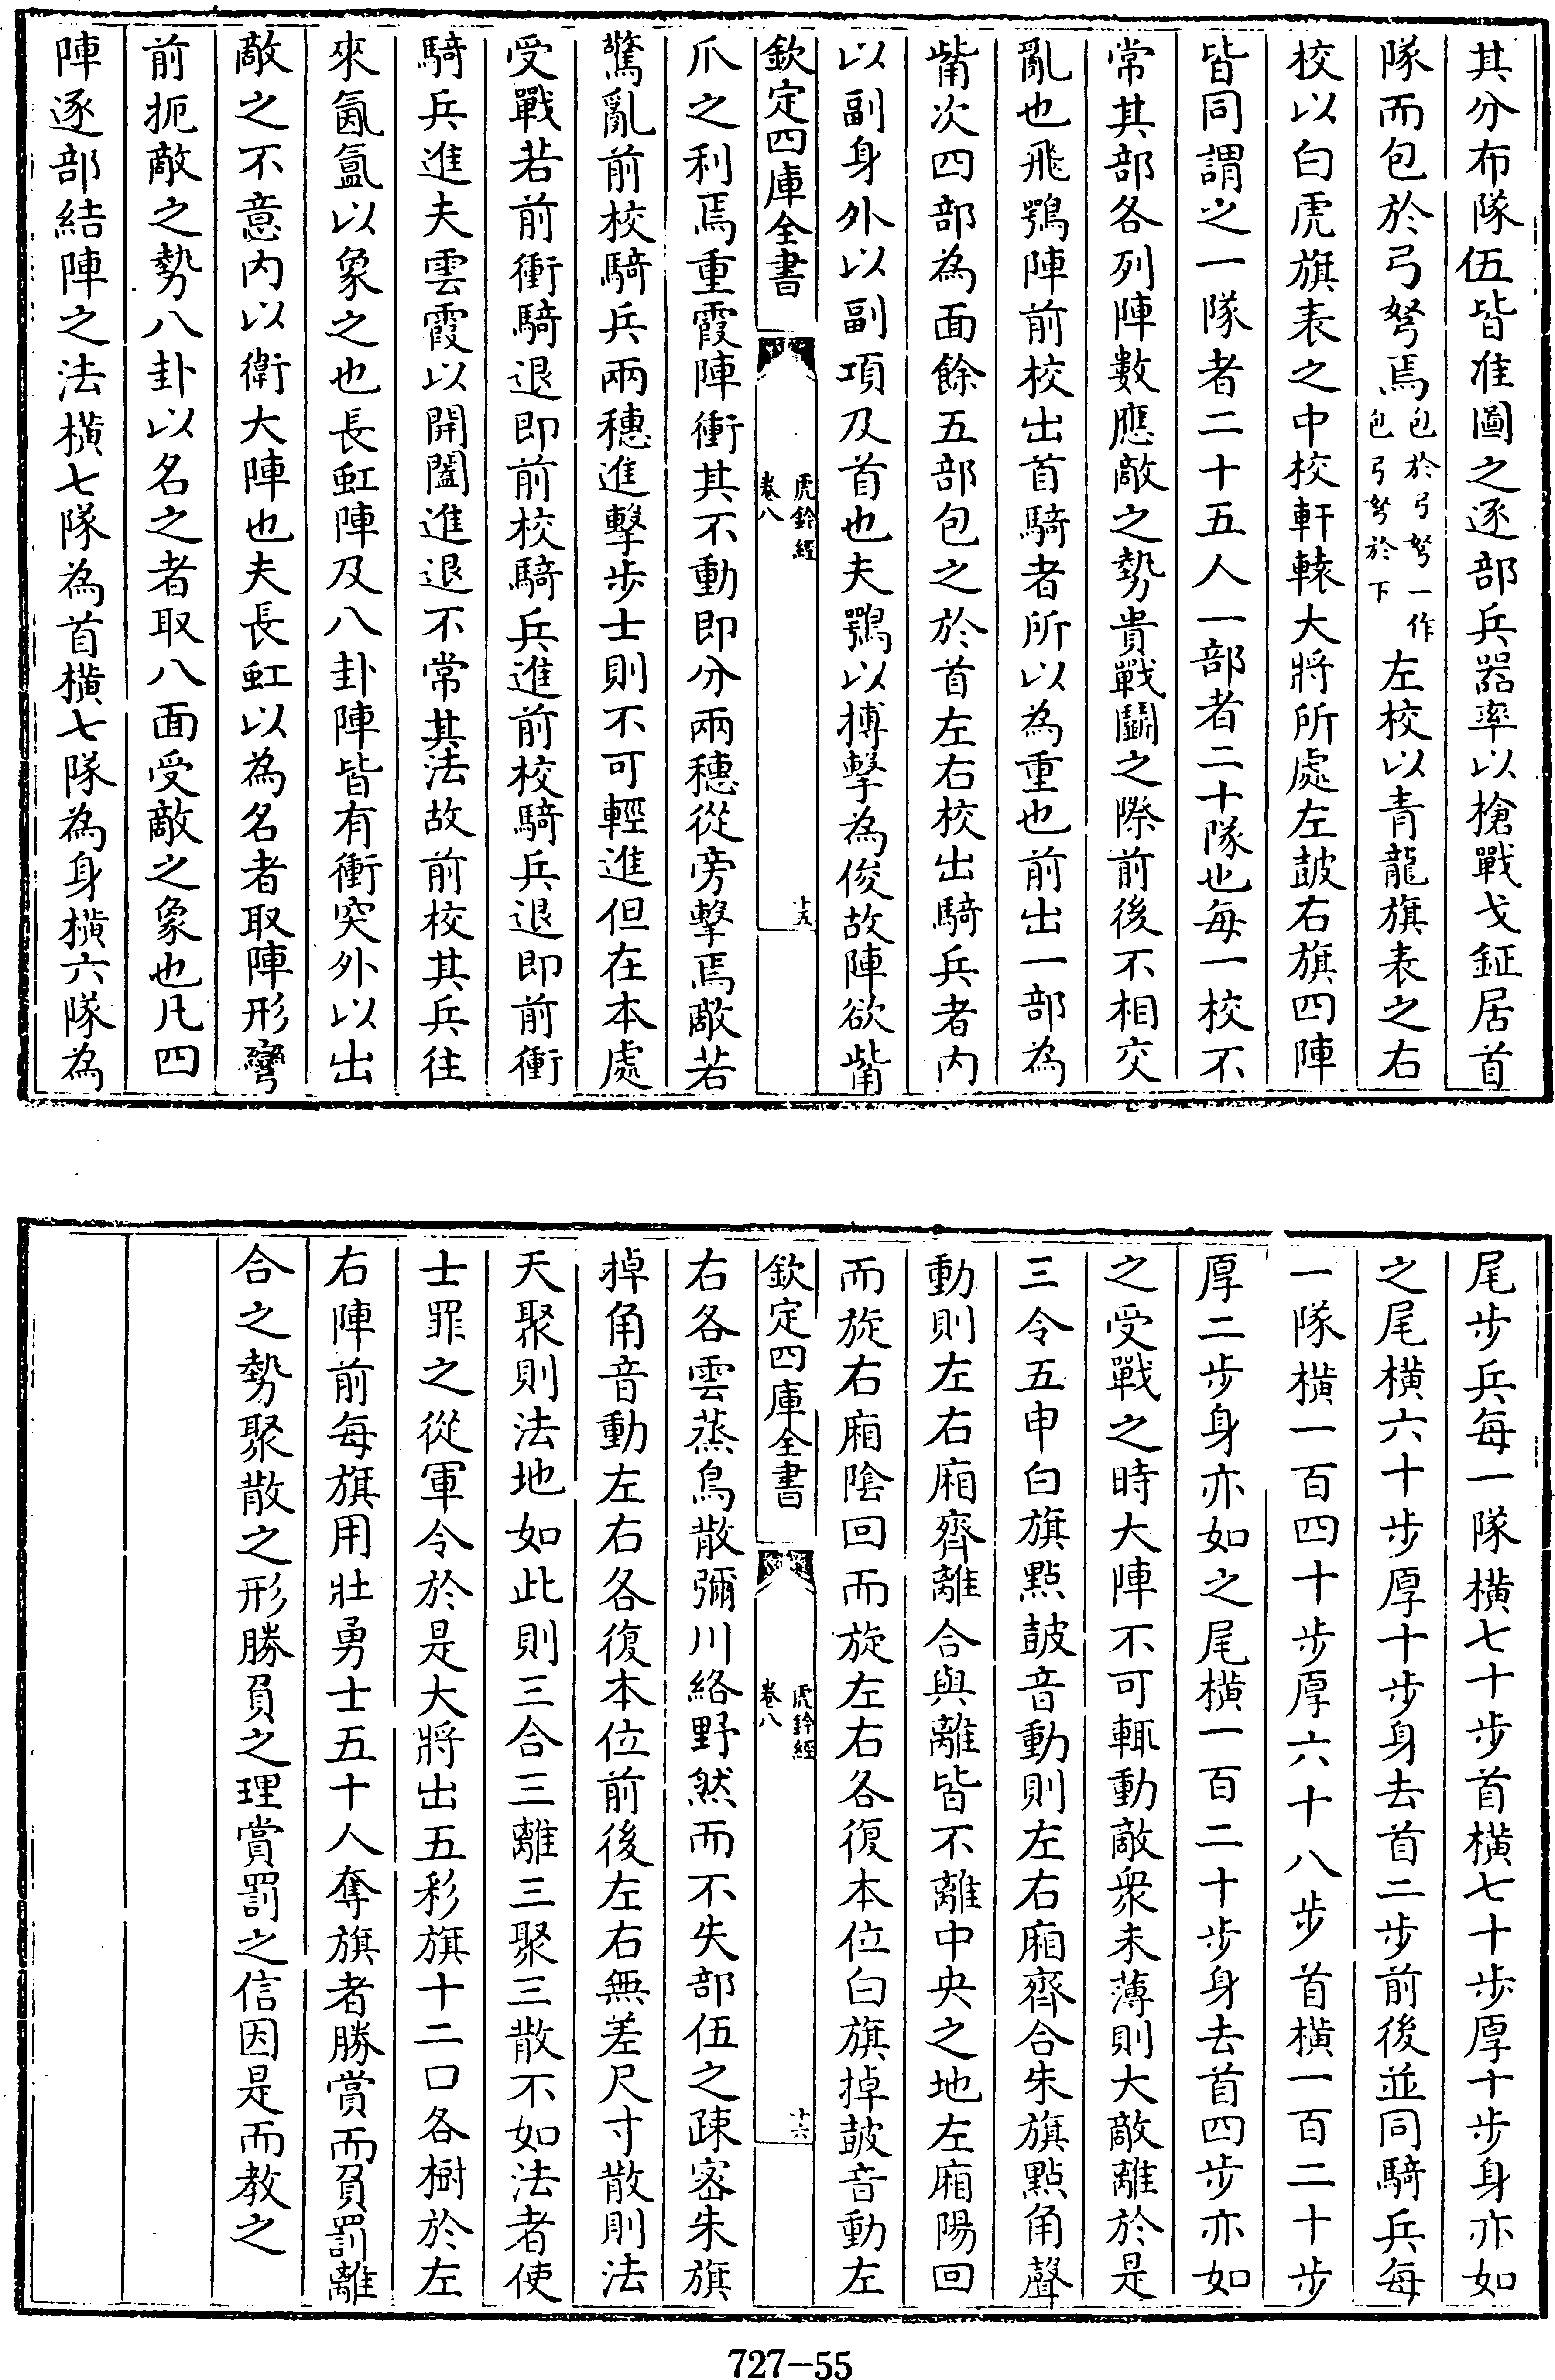 其分布隊伍皆准圖之逐部兵器率以槍戰戈鉦居首
隊而包於弓弩焉包於弓弩一作包弓弩於下左校以青龍旗表之右
校以白虎旗表之中校軒轅大將所處左皷右旗四陣
皆同謂之一隊者二十五人一部者二十隊也每一校不
常其部各列陣數應敵之勢貴戰鬭之際前後不相交
亂也飛鶚陣前校出首騎者所以為重也前出一部為
觜次四部為面餘五部包之於首左右校出騎兵者內
以副身外以副項及首也夫鶚以搏擊為俊故陣欲觜
欽定四庫全書
虎鈐經
卷八
十五
爪之利焉重霞陣衝其不動即分兩穗從旁擊焉敵若
驚亂前校騎兵兩穗進擊步士則不可輕進但在本處
受戰若前衝騎退即前校騎兵進前校騎兵退即前衝
騎兵進夫雲霞以開闔進退不常其法故前校其兵往
來氤氳以象之也長虹陣及八卦陣皆有衝突外以出
敵之不意內以衛大陣也夫長虹以為名者取陣形彎
前扼敵之勢八卦以名之者取八面受敵之象也凡四
陣逐部結陣之法橫七隊為首橫七隊為身橫六隊為
尾步兵每一隊橫七十步首橫七十步厚十步身亦如
之尾橫六十步厚十步身去首二步前後並同騎兵每
一隊橫一百四十步厚六十八步首橫一百二十步
厚二步身亦如之尾橫一百二十步身去首四步亦如
之受戰之時大陣不可輒動敵衆未薄則大敵離於是
三令五申白旗點皷音動則左右廂齊合朱旗點角聲
動則左右廂齊離合與離皆不離中央之地左廂陽回
而旋右廂陰回而旋左右各復本位白旗掉皷音動左
欽定四庫全書
虎鈐經
卷八
十六
右各雲蒸鳥散彌川絡野然而不失部伍之疎宻朱旗
掉角音動左右各復本位前後左右無差尺寸散則法
天聚則法地如此則三合三離三聚三散不如法者使
士罪之從軍令於是大將出五彩旗十二口各樹於左
右陣前每旗用壯勇士五十人奪旗者勝賞而負罰離
合之勢聚散之形勝負之理賞罰之信因是而教之
727-55